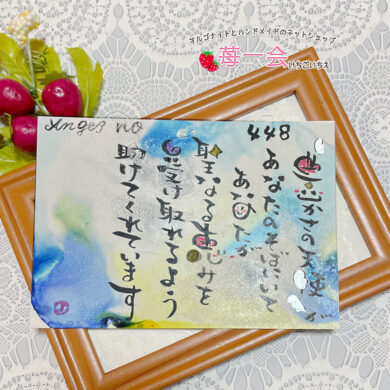 オルゴナイトとハンドメイドのネットショップ
苺一会
いちごいちえ
Angel no
448
豊かさの天使が
あなたのそばにいて
あなたが
聖なる恵みを
受け取れるよう
助けてくれています